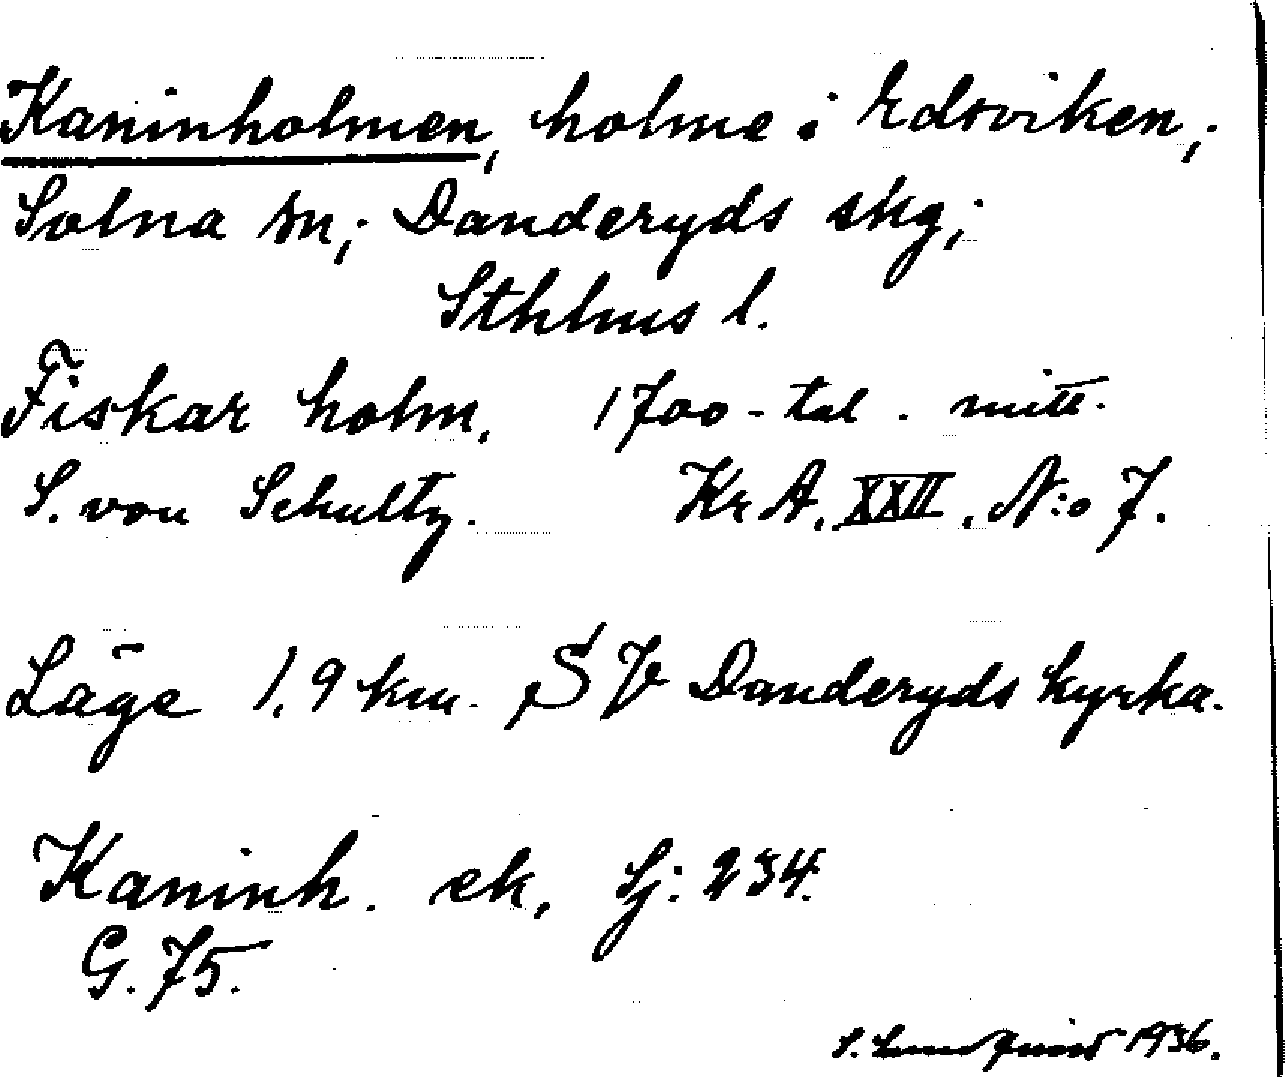 Kaninholmen, holme i Edsviken,;
Solna sn,; Danderyds skg,;
Sthlms l.
Fiskar holm. 1700-tal. mitt.
S. von Schultz. Kr A. XXII. N:o 7.
Läge 1,9 km. SV Danderyds kyrka.
Kaninh. ek. Sj: 234.
G. 75.
S. Lundquist 1936.